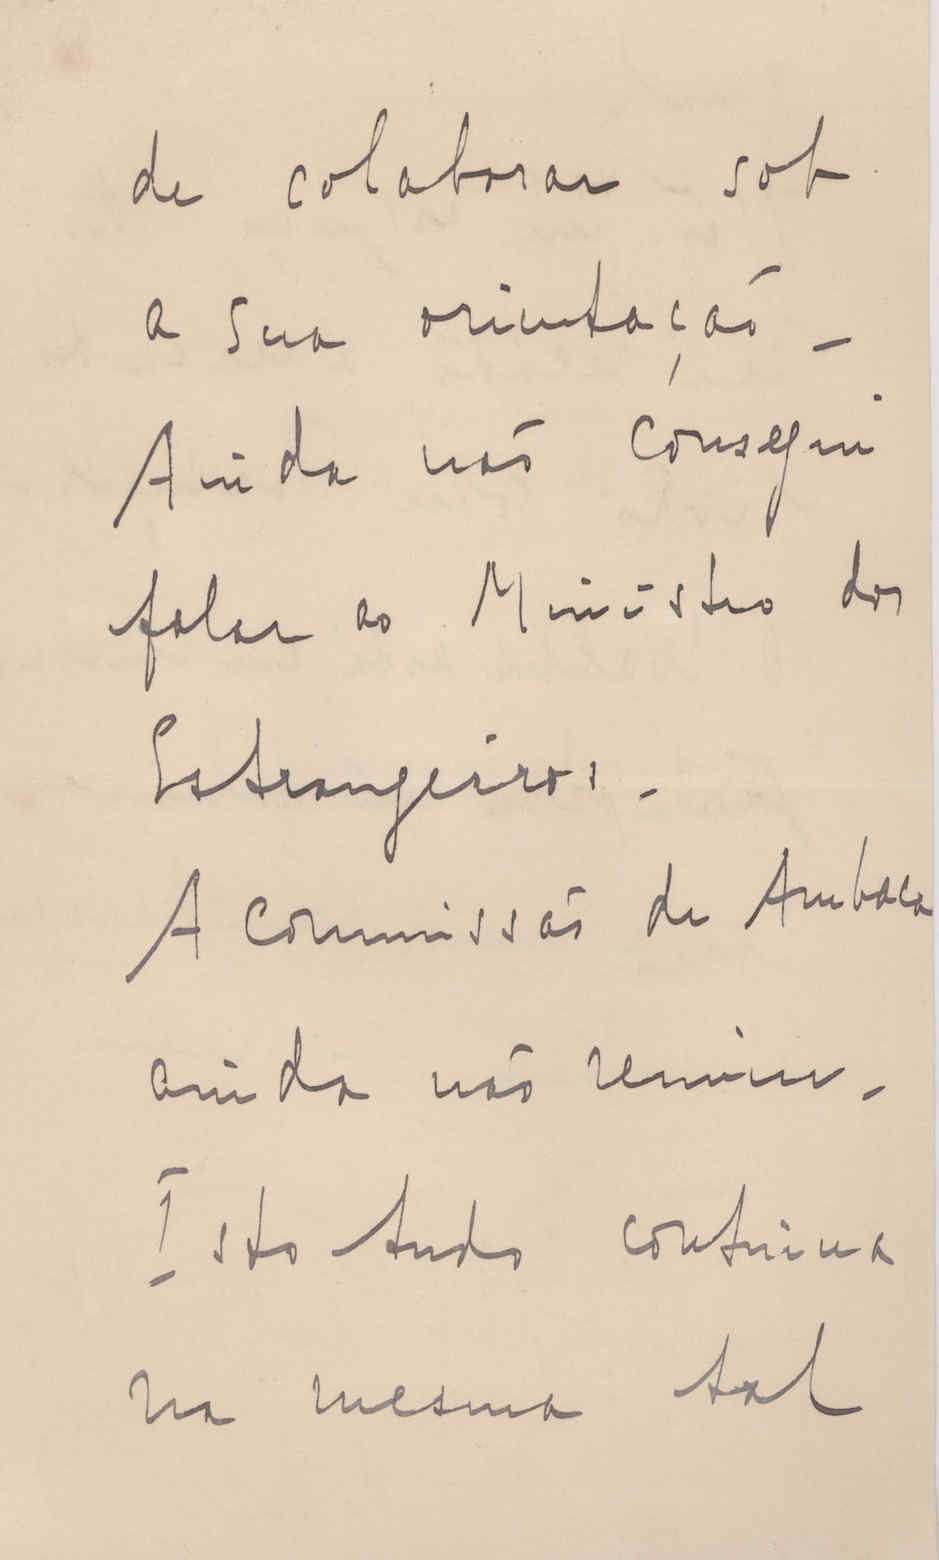 de colaborar sob
a sua orientação –
Ainda não consegui
falar ao Ministro dos
Estrangeiros. –
A Commissão de Ambaca
ainda não reuniu. –
Isto tudo continua
na mesma tal